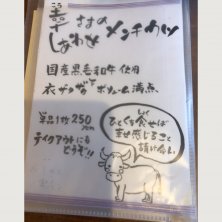 幸
さすの
しあわせ メンチカツ
国産黒毛和牛使用
衣ザクザク ボリューム満点
単品1ケ250yen
テイクアウトにも
どうぞ!!
ひとくち食せば
幸せ感じること
請け合い。